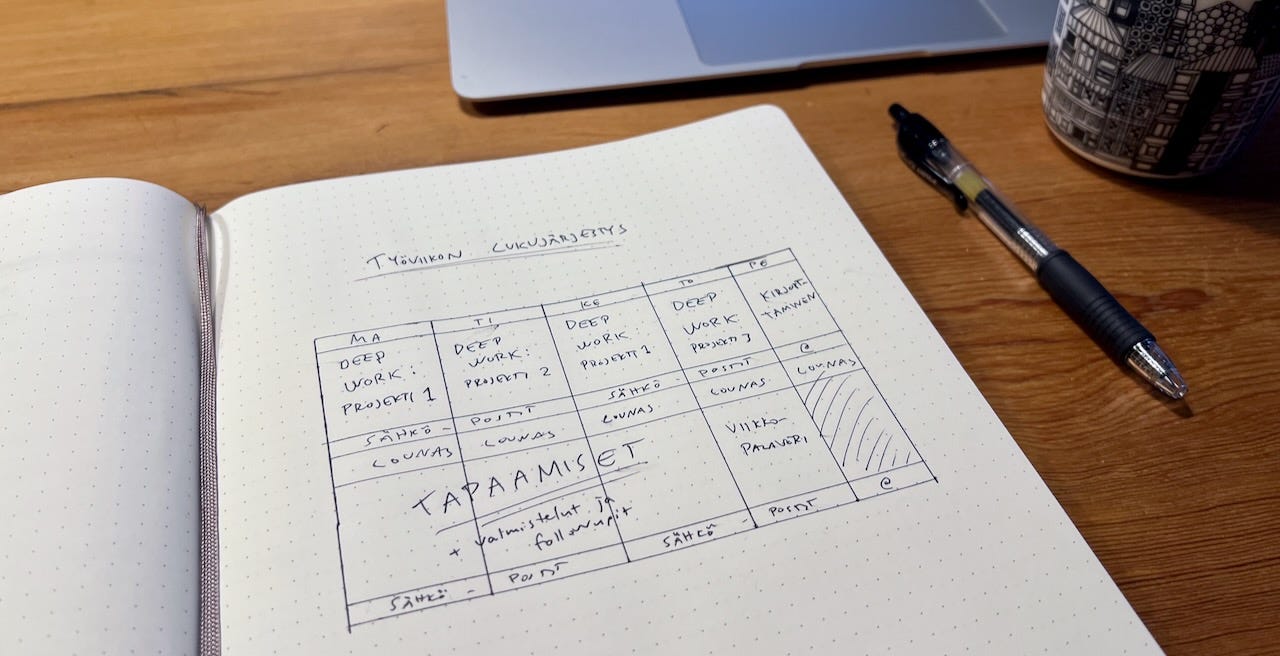 TYÖVIIKON LUKUJÄRJESTYS
MA TI KE TO PE
DEEP WORK: PROJEKTI 1
DEEP WORK: PROJEKTI 2
DEEP WORK: PROJEKTI 1
DEEP WORK PROJEKTI 3
KIRJOIT-
TAMINEN
SÄHKÖ - POSTIT SÄHKÖ - POSTIT @
LOUNAS LOUNAS LOUNAS LOUNAS LOUNAS
TAPAAMISET
+ valmistelut ja
followupit
VIIKKO-
PALAVERI
SÄHKÖ - POSTIT SÄHKÖ - POSTIT @